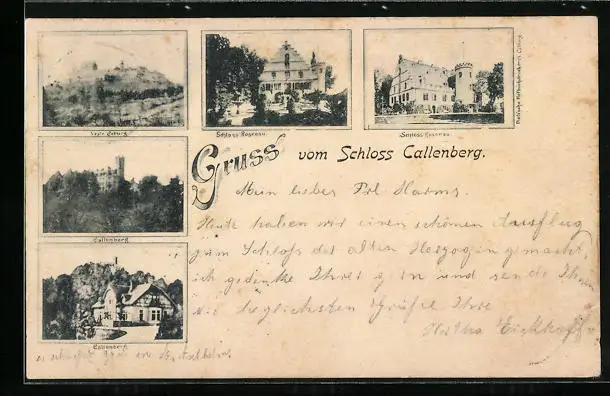 Veste Coburg.
Schloss Rosenau.
Schloss Rosenau.
Callenberg.
Callenberg.
Gruss vom Schloss Callenberg.
Mein lieber Frl Harms.
Heute haben wir einen schönen Ausflug
zum Schloss der alten Herzogin gemacht,
ich gedenke Ihrer gern und sende Ihnen
die herzlichsten Grüße Ihre
Eickhoff